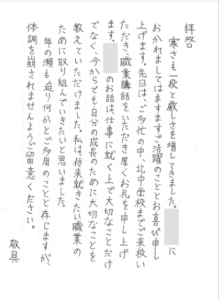 拝啓
寒さも一段と厳しさを増してきました。に
おかれましてはますますご活躍のこととお喜び申し
上げます。先日は、ご多忙の中、北中学校までご来校い
ただき、職業講話をいただき厚くお礼を申し上げ
ます。のお話は、仕事に就く上で大切なことだけ
でなく、今からでも自分の成長のために大切なことを
教えていただけました。私は将来就きたい職業の
ために取り組んでいきたいと思いました。
年の瀬も迫り何かとご多用のことと存じますが、
体調を崩されませんようご留意ください。
敬具